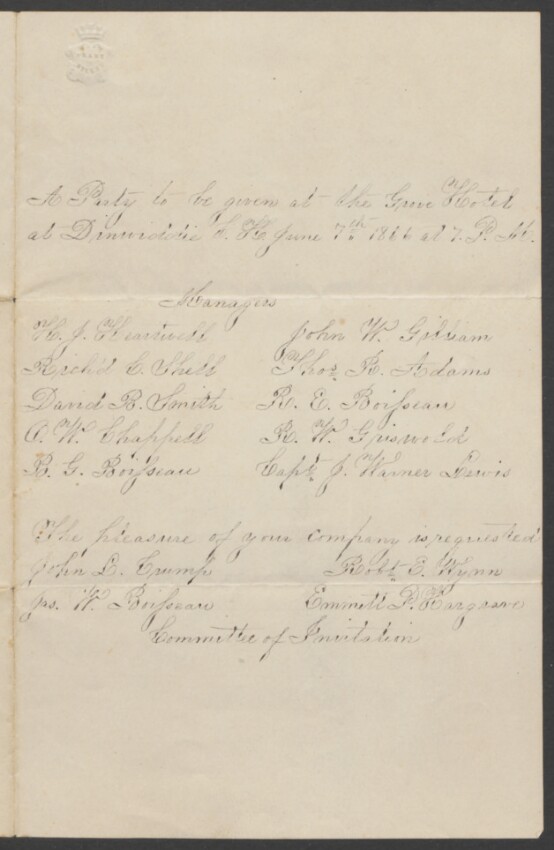 A Party to be given at the Hotel
at Dinwiddie C. H. June 7th 1866 at 7. P. M.
Managers
H. J. Heartwell John W. Gilliam
Rich'd E. Shell Thos. R. Adams
David B. Smith R. E. Boisseau
O. W. Chappell R. W. Griswold
B. G. Boisseau Capt. J. Warner Lewis
The pleasure of your company is requested
John L. Crump Robt. E. Wynn
Jas. W. Boisseau Emmett P. Hargrave
Committee of Invitation